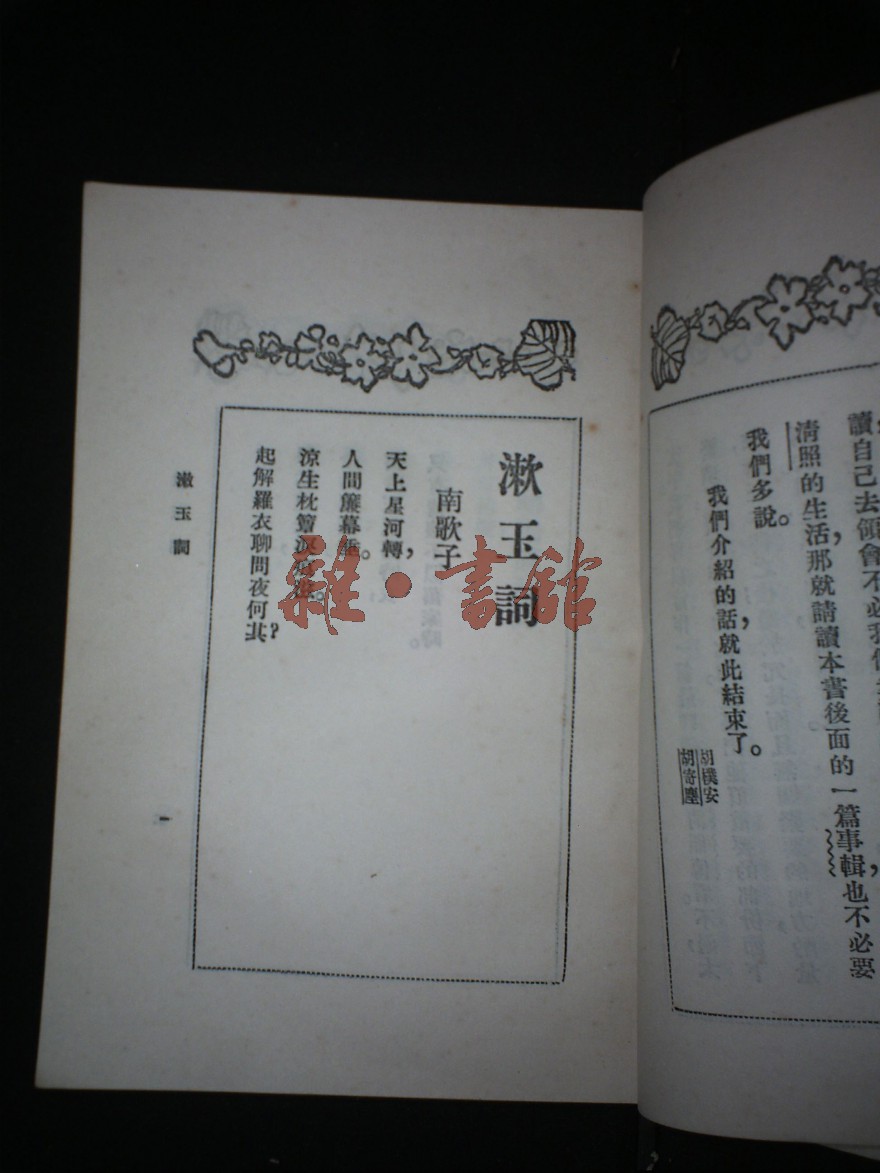 讀自己去領會不必我們
清照的生活，那就請讀本書後面的一篇事輯，也不必要
我們多說。
我們介紹的話，就此結束了。
胡樸安
胡寄塵
漱玉詞
南歌子
天上星河轉，
人間簾幕垂。
涼生枕簟淚痕滋。
起解羅衣聊問夜何其？
漱玉詞
一
雜·書館